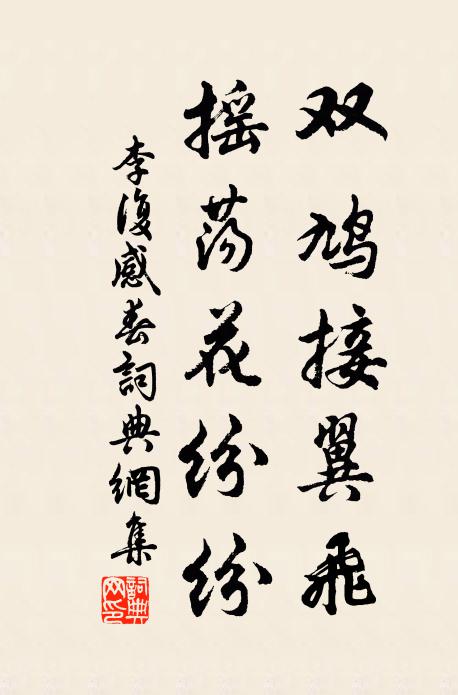 双鸠接翼飞
摇荡花纷纷
李復感春詞典網集
詞典网印